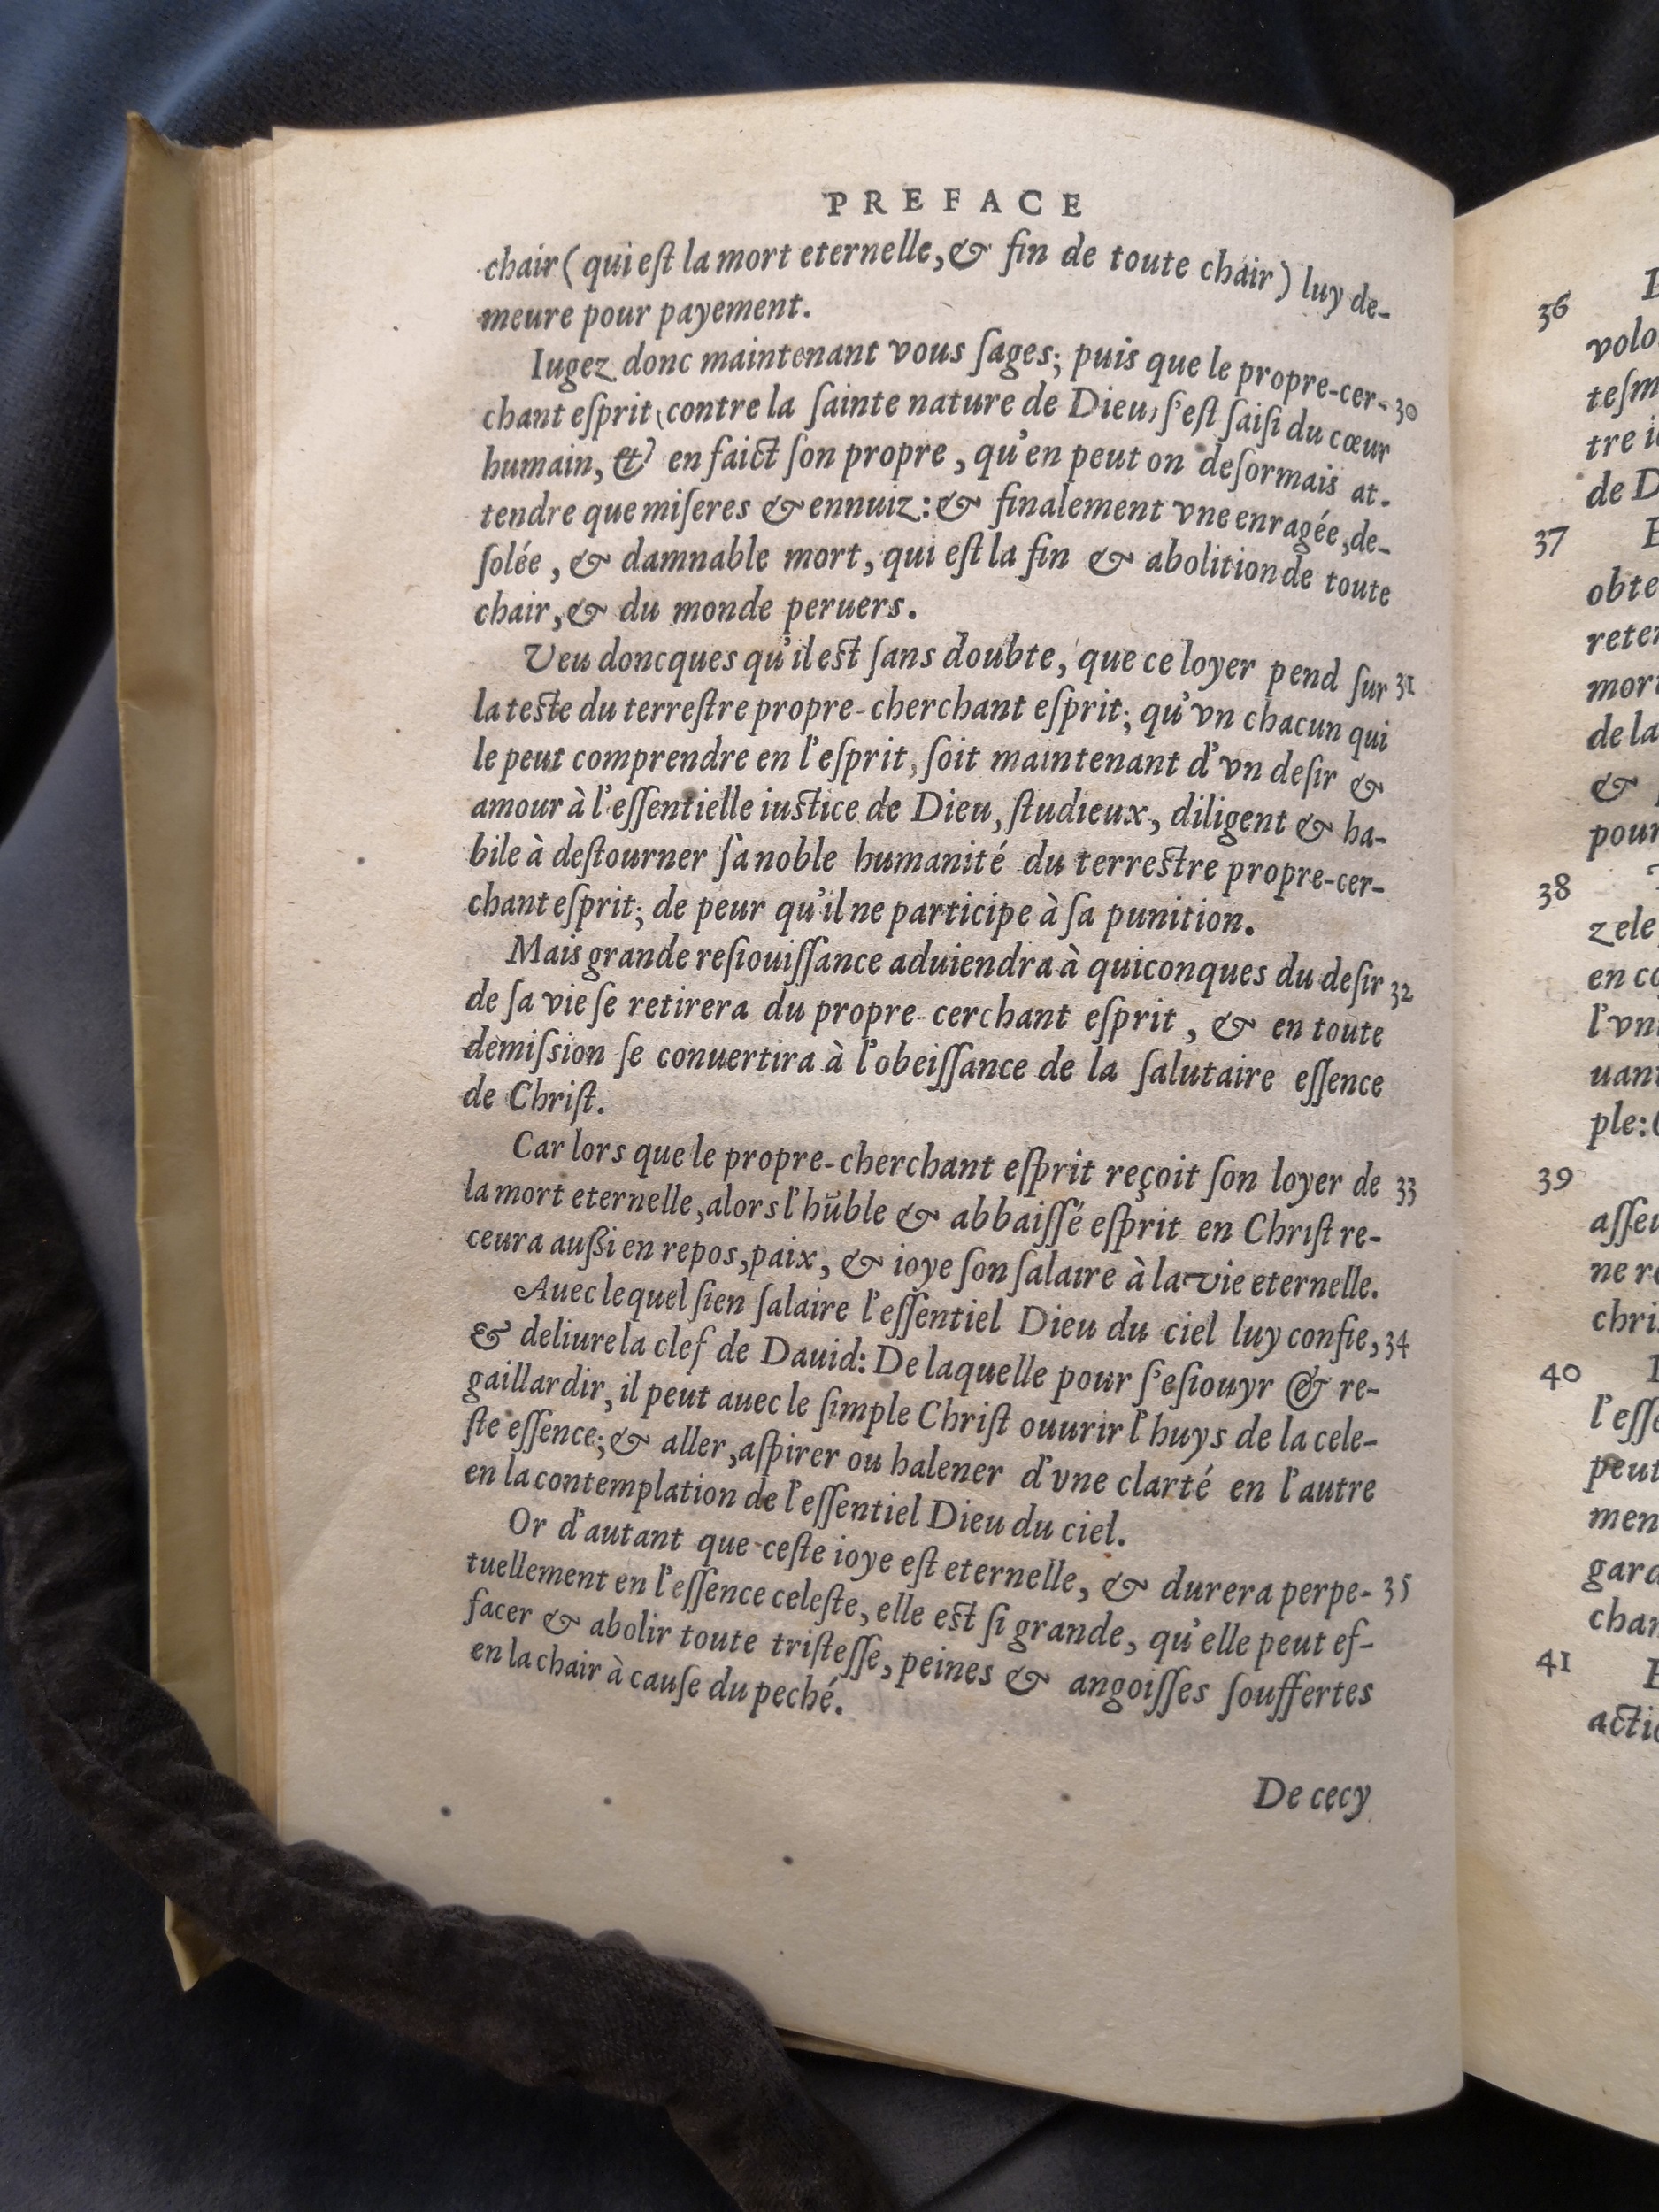 PREFACE
chair ( qui eſt la mort eternelle, & fin de toute chair ) luy de-
meure pour payement.
Iugez donc maintenant vous ſages; puis que le propre-cer- 30
chant eſprit (contre la ſainte nature de Dieu) s'eſt ſaiſi du cœur
humain, & en faict ſon propre, qu'en peut on deſormais at-
tendre que miſeres & ennuiz: & finalement vne enragée, de-
ſolée, & damnable mort, qui eſt la fin & abolition de toute
chair, & du monde peruers.
Veu doncques qu'il est ſans doubte, que ce loyer pend ſur 31
la teste du terreſtre propre-cherchant eſprit; qu'vn chacun qui
le peut comprendre en l'eſprit, ſoit maintenant d'vn deſir &
amour à l'eſſentielle iustice de Dieu, ſtudieux, diligent & ha-
bile à deſtourner ſa noble humanité du terrestre propre-cer-
chant eſprit; de peur qu'il ne participe à ſa punition.
Mais grande reſiouiſſance aduiendra à quiconques du deſir 32
de ſa vie ſe retirera du propre-cerchant eſprit, & en toute
demiſsion ſe conuertira à l'obeiſſance de la ſalutaire eſſence
de Chriſt.
Car lors que le propre-cherchant eſprit reçoit ſon loyer de 33
la mort eternelle, alors l'hũble & abbaiſſé eſprit en Chriſt re-
ceura außi en repos, paix, & ioye ſon ſalaire à la vie eternelle.
Auec lequel ſien ſalaire l'eſſentiel Dieu du ciel luy confie, 34
& deliure la clef de Dauid: De laquelle pour s'eſiouyr & re-
gaillardir, il peut auec le ſimple Chriſt ouurir l'huys de la cele-
ſte eſſence; & aller, aſpirer ou halener d'vne clarté en l'autre
en la contemplation de l'eſſentiel Dieu du ciel.
Or d'autant que ceſte ioye eſt eternelle, & durera perpe- 35
tuellement en l'eſſence celeſte, elle est ſi grande, qu'elle peut ef-
facer & abolir toute triſteſſe, peines & angoiſſes ſouffertes
en la chair à cauſe du peché.
De cecy
36
volo
teſm
tre i
de D
37
obte
reter
mort
de la
&
pour
38
zele
en co
l'vn
uant
ple:
39
aſſeu
ne re
chri
40
l'eſſe
peut
men
gard
chan
41
actio